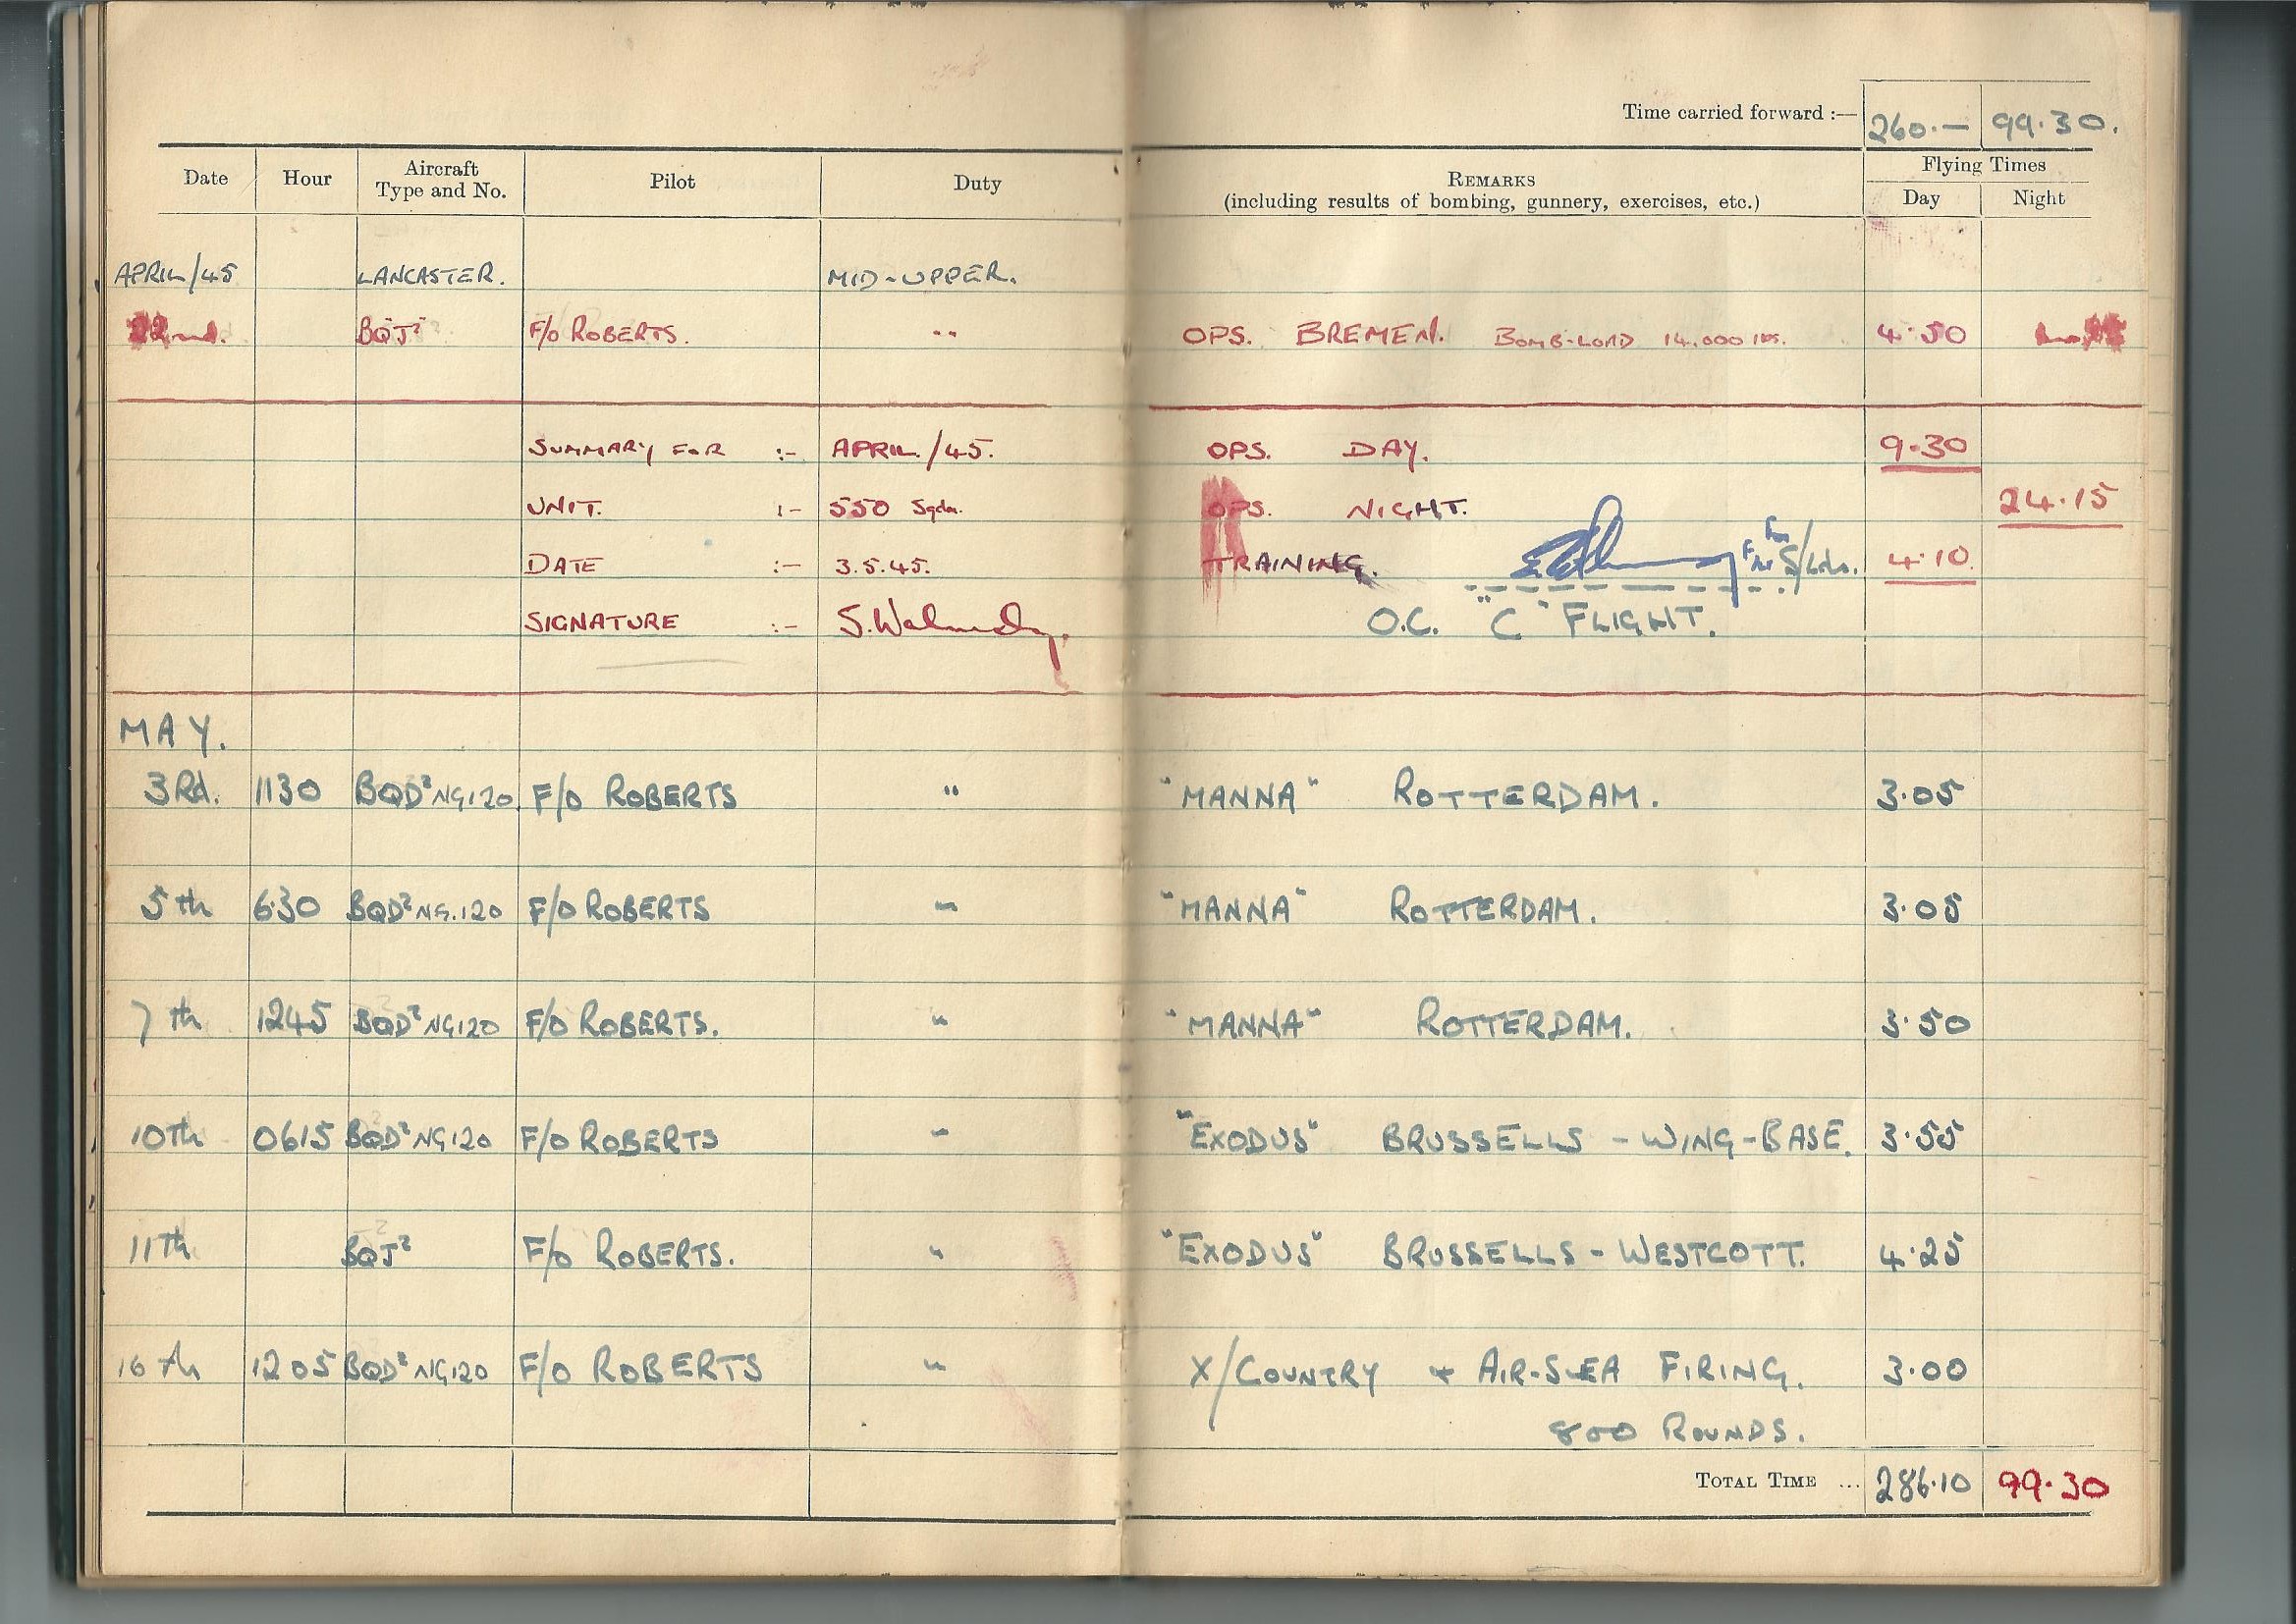 Time carried forward :— 260.— 99.30.
Date Hour Aircraft Type and No. Pilot Duty REMARKS (including results of bombing, gunnery, exercises, etc.) Flying Times Day Night
APRIL/45 LANCASTER. MID-UPPER.
22nd. BQJ² F/O ROBERTS. " OPS. BREMEN. BOMB-LOAD 14.000 lbs. 4.50
SUMMARY FOR :- APRIL/45. OPS. DAY. 9.30
UNIT. :- 550 Sqdn. OPS. NIGHT. 24.15
DATE :- 3.5.45. TRAINING. S/Ldr. 4.10
SIGNATURE :- S. O.C. "C" FLIGHT.
MAY.
3Rd. 1130 BQD² NG120 F/O ROBERTS " "MANNA" ROTTERDAM. 3.05
5th 630 BQD² NG.120 F/O ROBERTS " "MANNA" ROTTERDAM. 3.05
7th 1245 BQD² NG120 F/O ROBERTS. " "MANNA" ROTTERDAM. 3.50
10th 0615 BQD² NG120 F/O ROBERTS " "EXODUS" BRUSSELLS - WING-BASE. 3.55
11th BQJ² F/O ROBERTS. " "EXODUS" BRUSSELLS - WESTCOTT. 4.25
16th 1205 BQD² NG120 F/O ROBERTS " X/COUNTRY + AIR-SEA FIRING. 3.00
800 ROUNDS.
TOTAL TIME ... 286.10 99.30